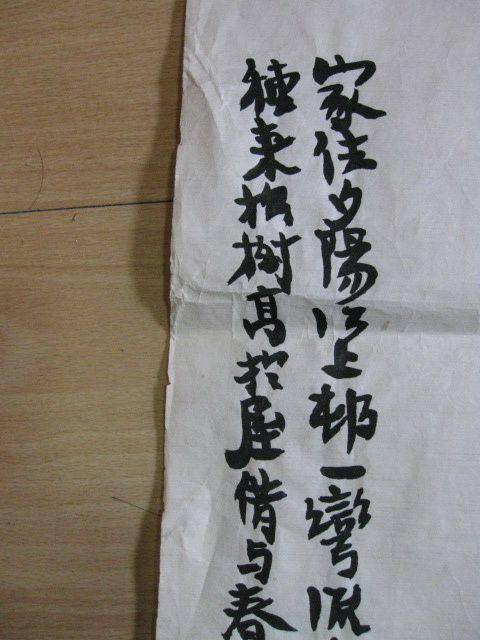 家住夕陽江上邨一彎流
種来松樹高於屋借与春